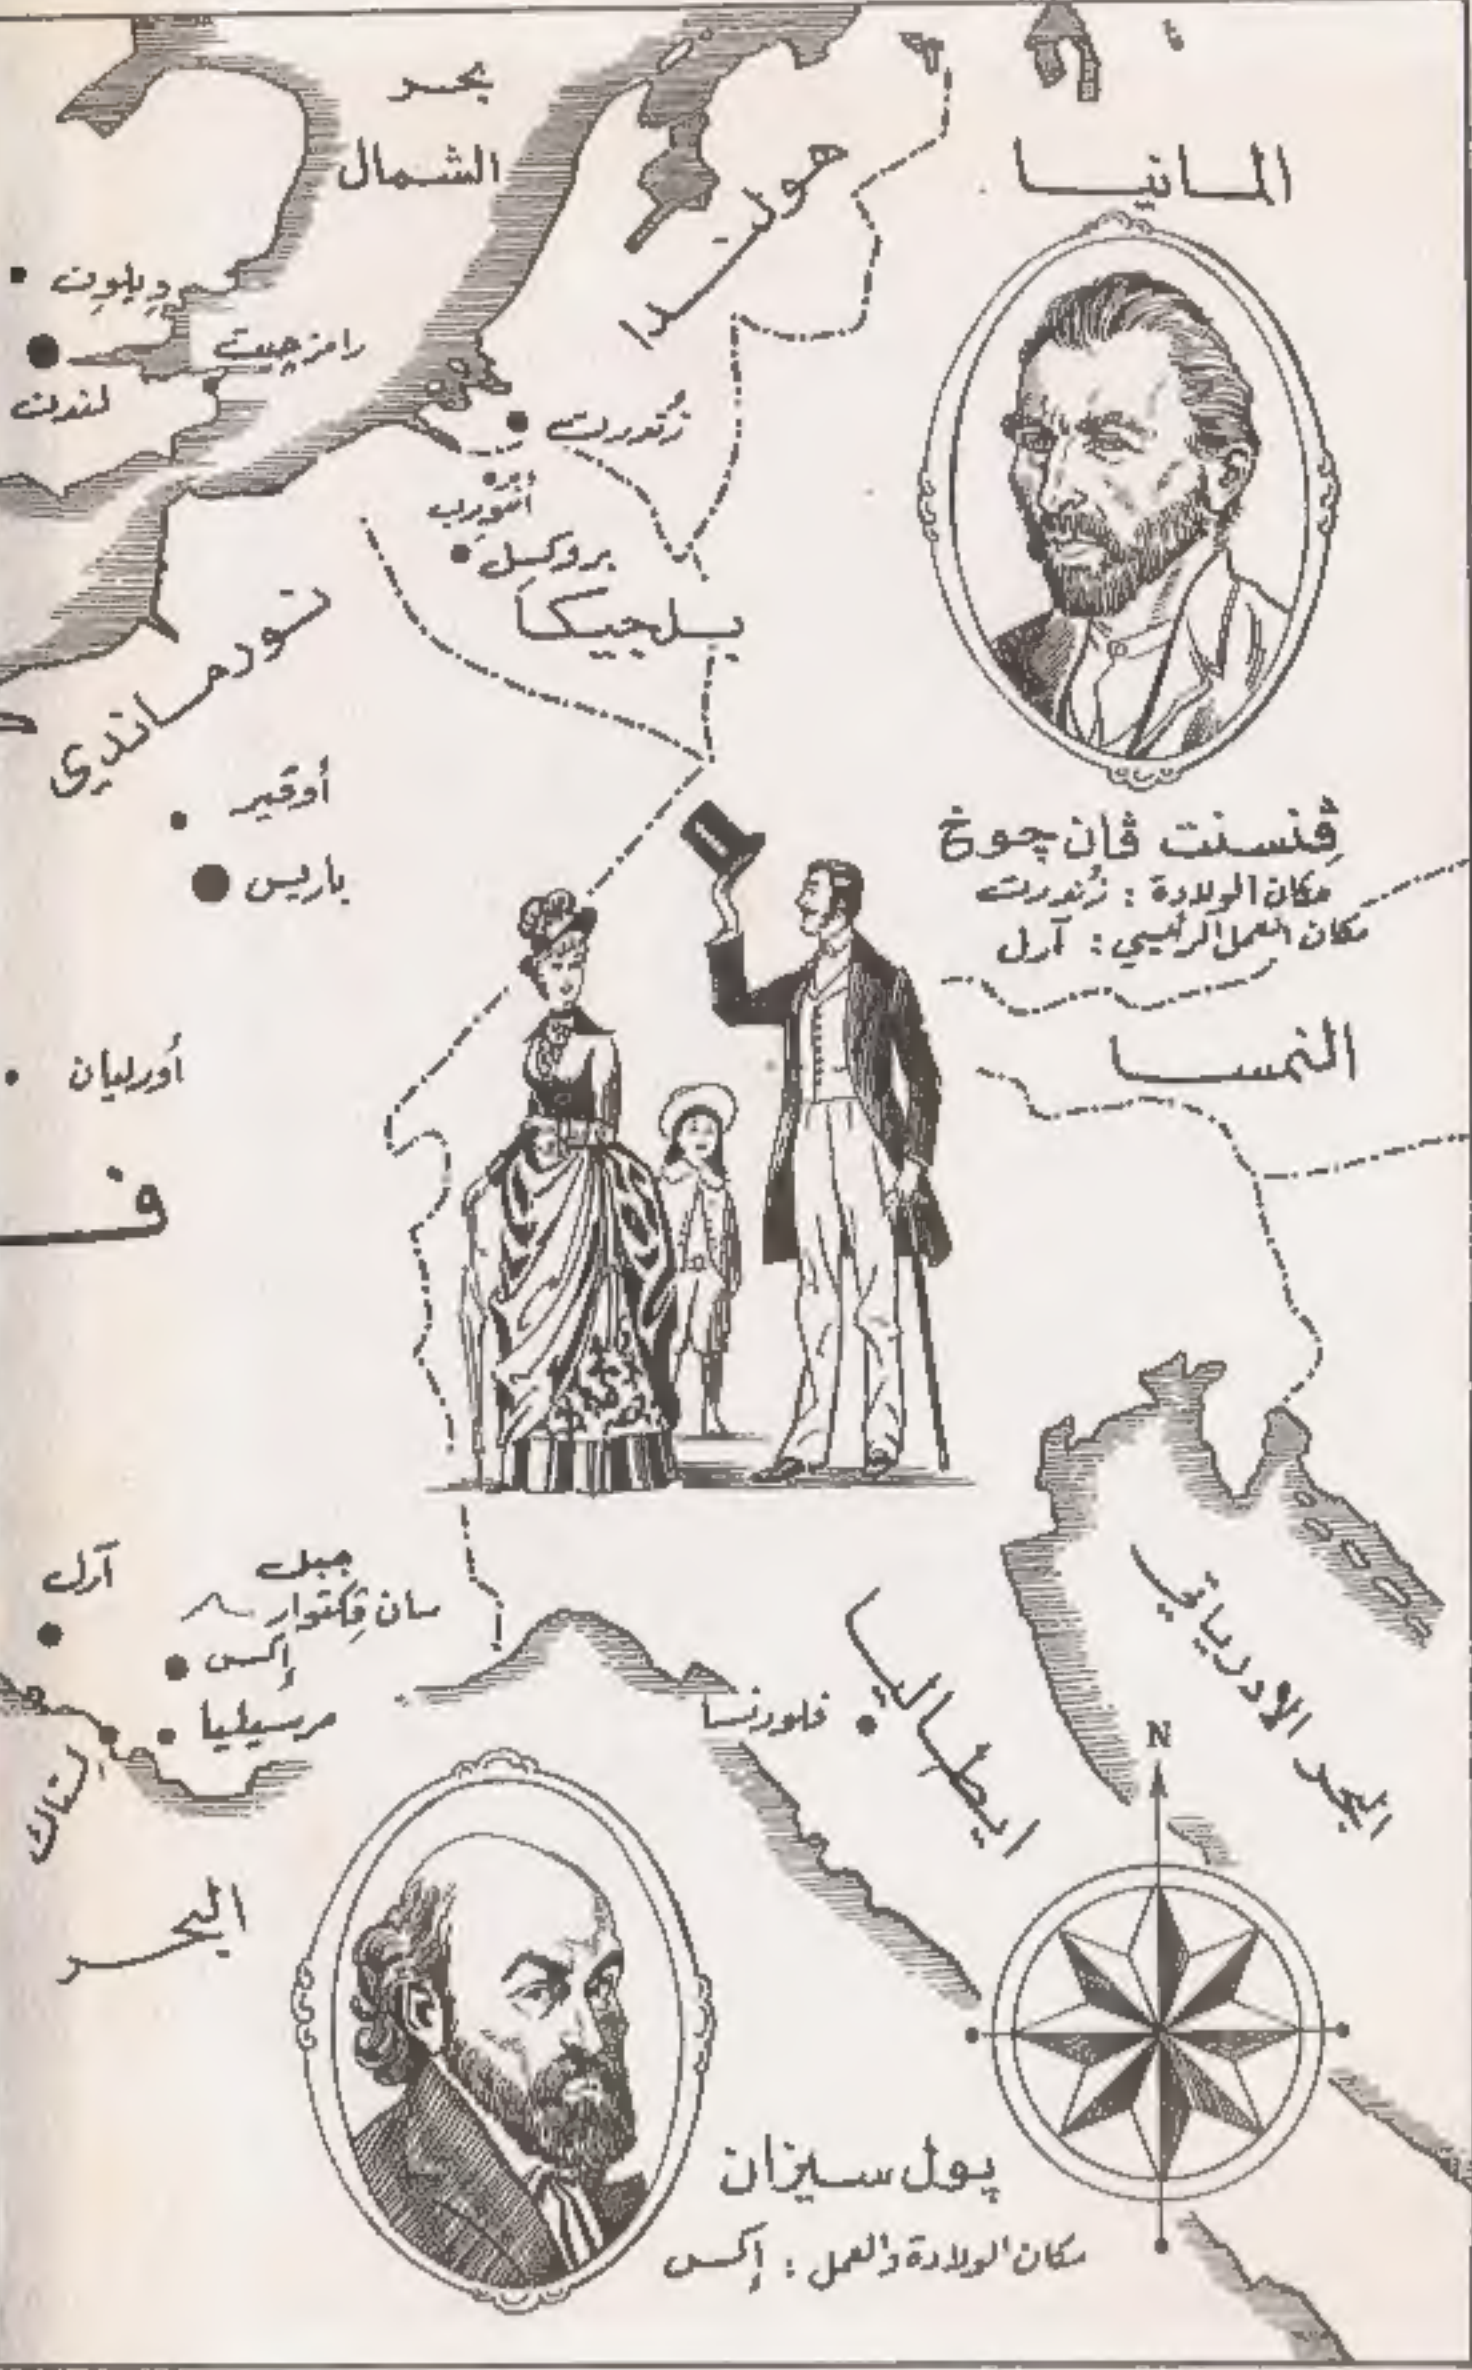 بحر
الشمال
هولندا
المانيا
ويلوين
رامزجيت
لندن
زُندرت
أنتورب
بروكسل
بلجيكا
نورماندي
أوڤير
باريس
ڤنسنت ڤان چوخ
مكان الولادة : زُندرت
مكان العمل الرئيسي : آرل
النمسا
أورليان
فـ
آرل
جبل
سان ڤكتوار
إكس
مرسيليا
إستاك
فلورنسا
ايطاليا
البحر الأدرياتي
N
البحر
پول سيزان
مكان الولادة والعمل : إكس